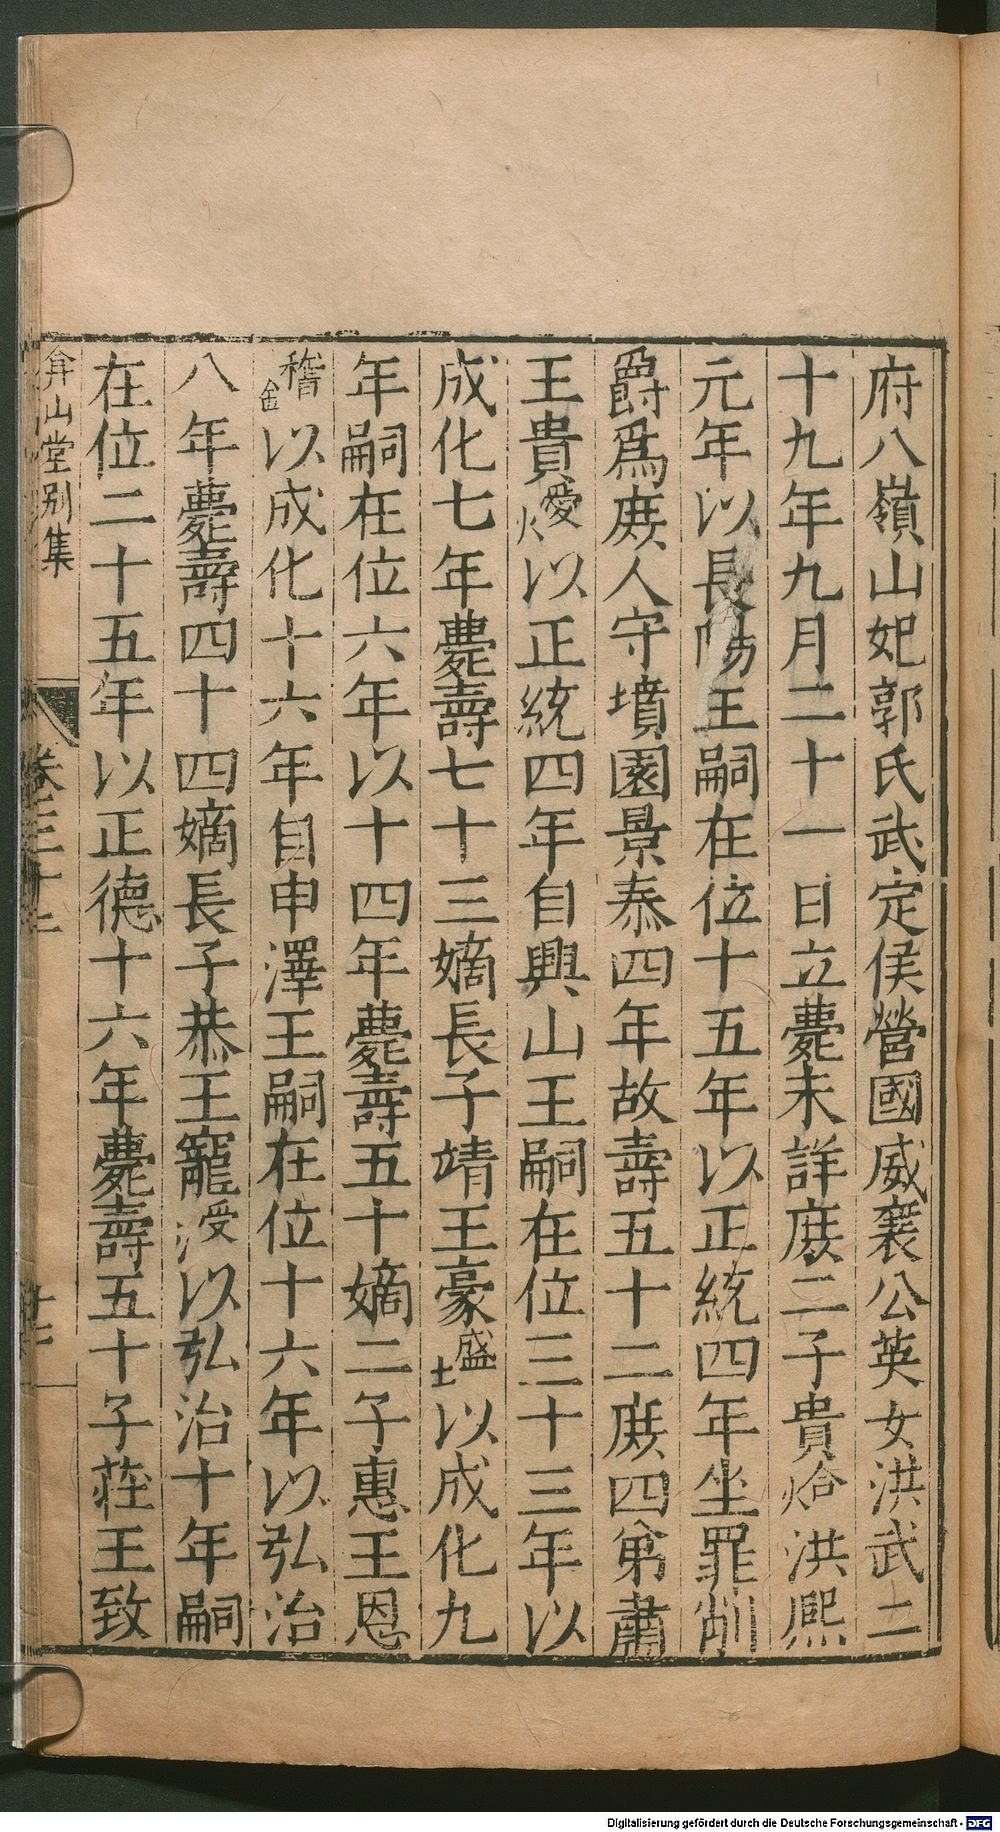 府八嶺山妃郭氏武定侯營國威襄公英女洪武二
十九年九月二十一日立薨未詳庶二子貴烚洪熙
元年以長陽王嗣在位十五年以正統四年坐罪削
爵爲庶人守墳園景泰四年故壽五十二庶四弟肅
王貴燰以正統四年自興山王嗣在位三十三年以
成化七年薨壽七十三嫡長子靖王豪墭以成化九
年嗣在位六年以十四年薨壽五十嫡二子惠王恩
稽金以成化十六年自申澤王嗣在位十六年以弘治
八年薨壽四十四嫡長子恭王寵涭以弘治十年嗣
在位二十五年以正德十六年薨壽五十子莊王致
弇山堂别集 卷三十二 十七
Digitalisierung gefördert durch die Deutsche Forschungsgemeinschaft - DFG